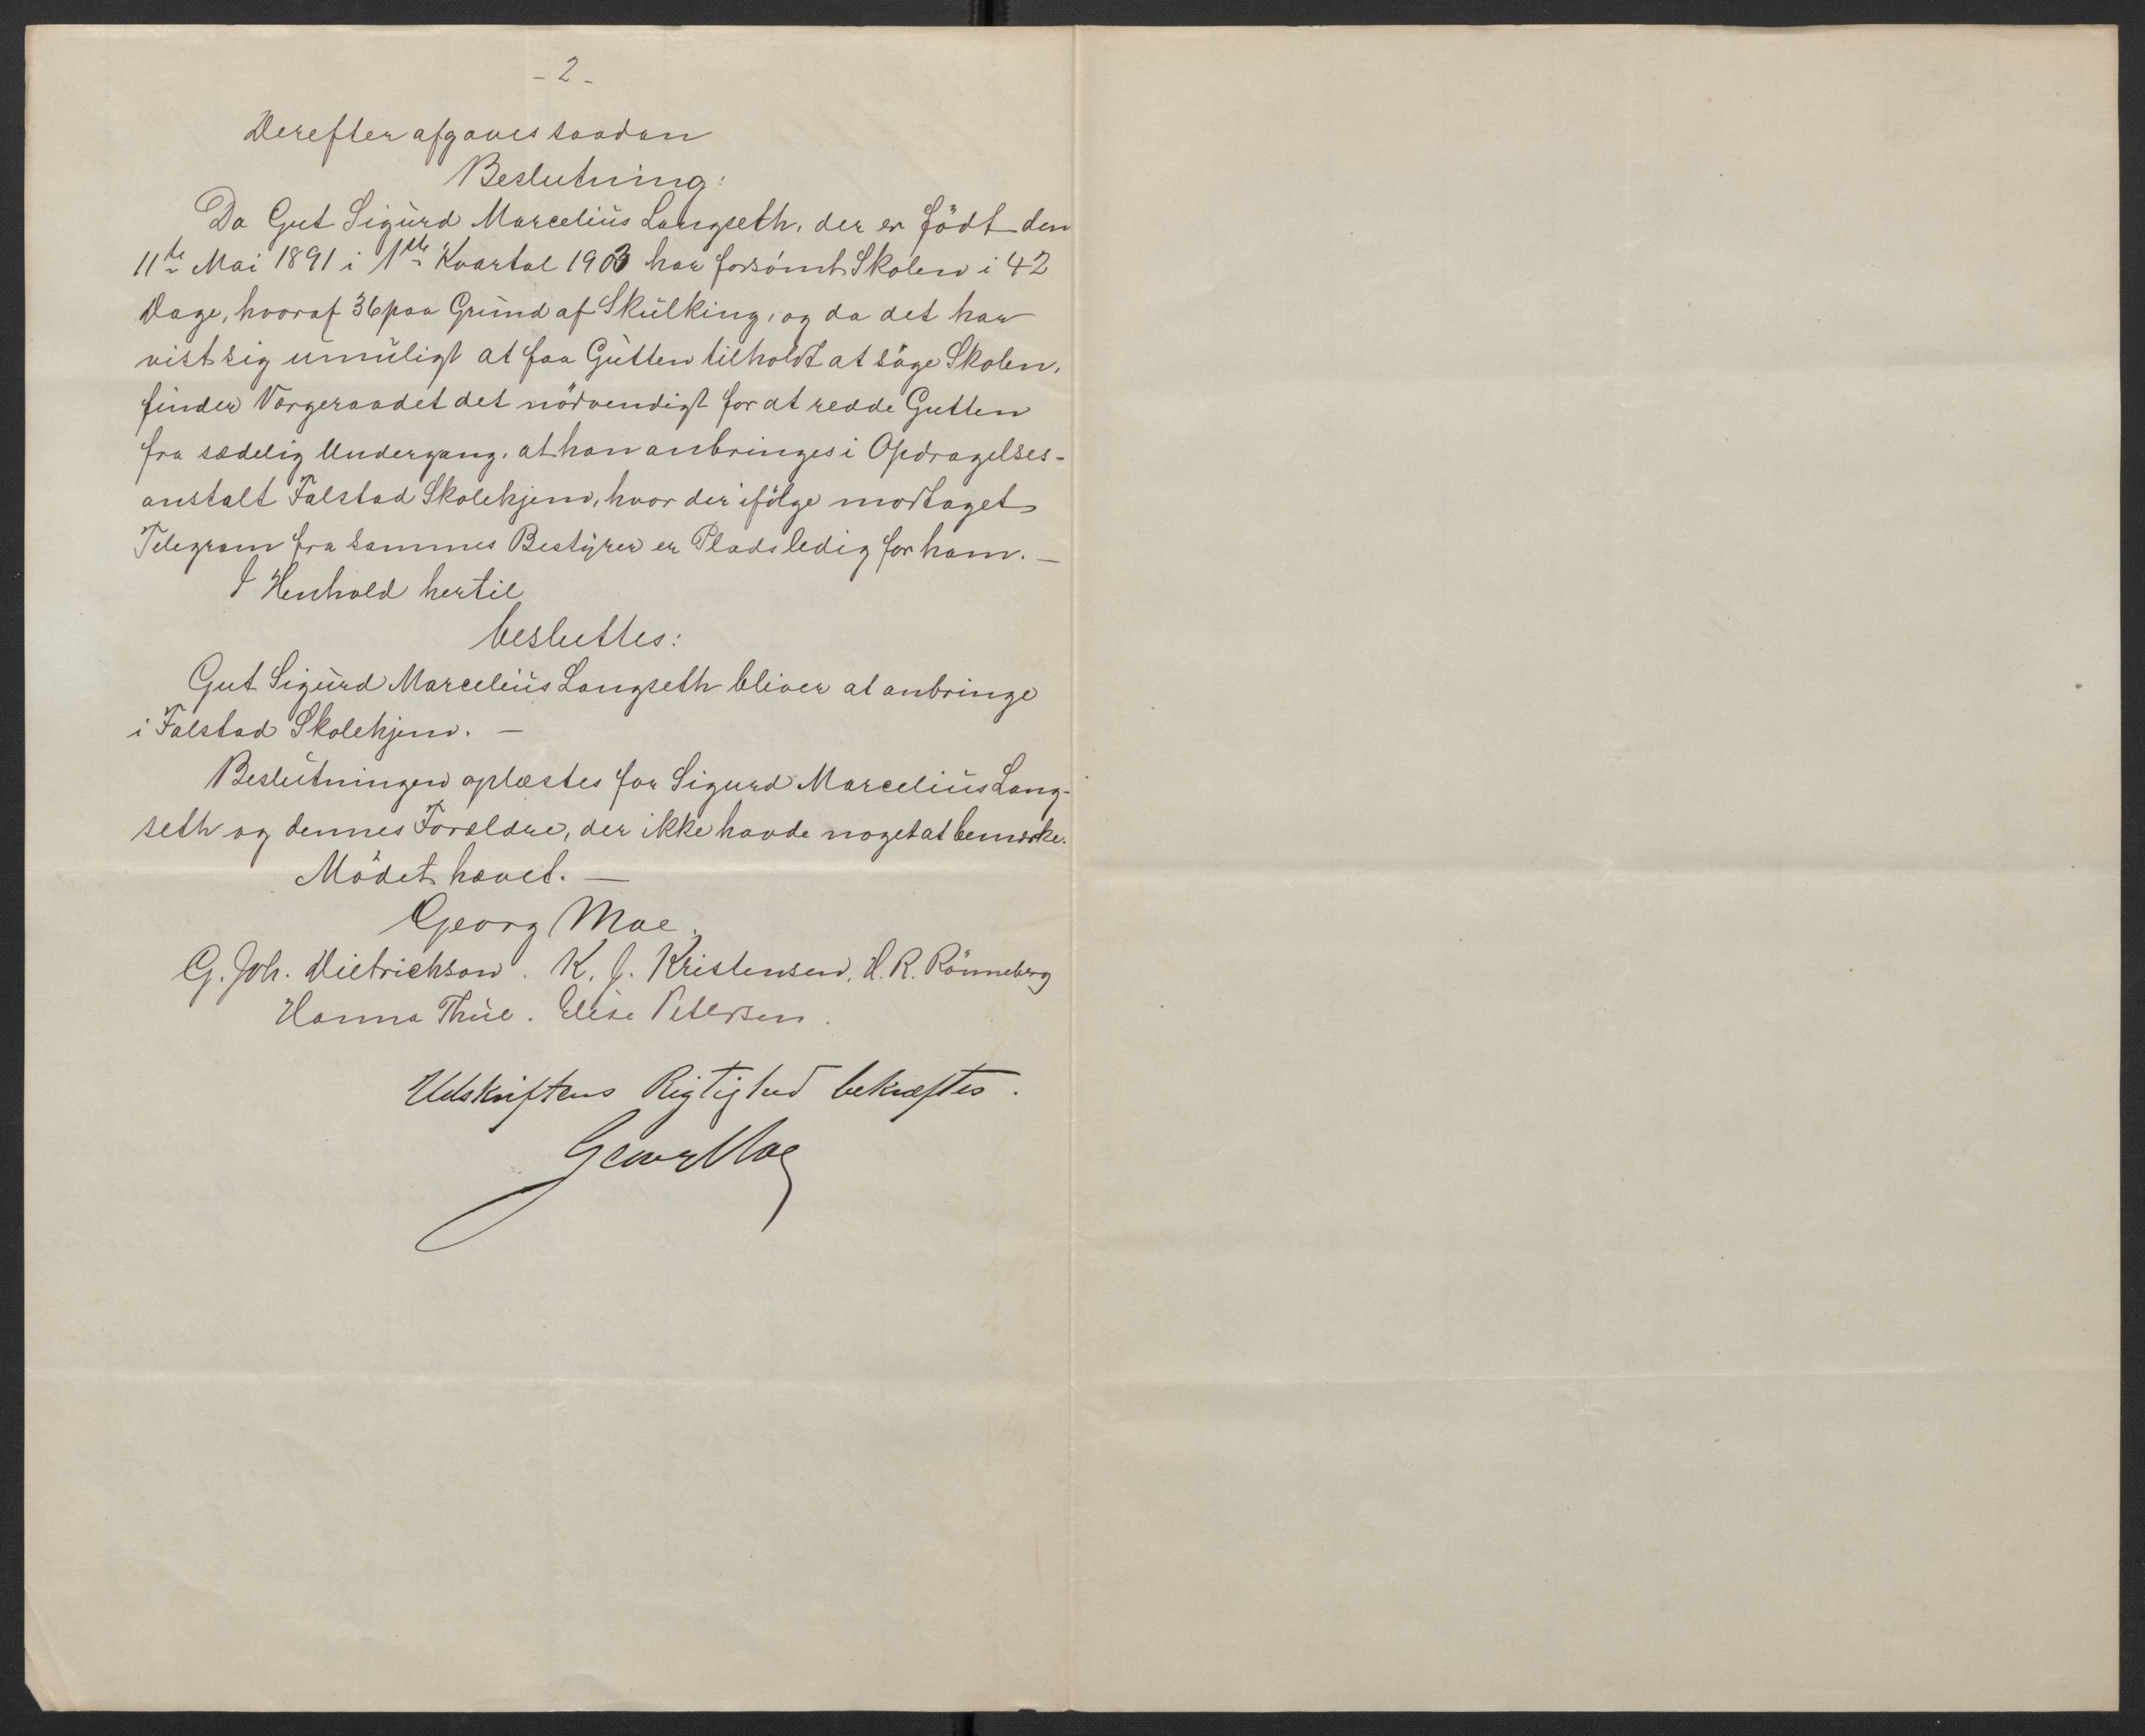 - 2 -
Derefter afgaves saadan
Beslutning:
Da Gut Sigurd Marcelius Langseth, der er født den
11te Mai 1891 i 1ste Kvartal 1903 har forsømt Skolen i 42
Dage, hvoraf 36 paa Grund af Skulking, og da det har
vist sig umuligt at faa Gutten tilholdt at søge Skolen,
finder Værgeraadet det nødvendigt for at redde Gutten
fra sædelig Undergang, at han anbringes i Opdragelses-
anstalt Falstad Skolehjem, hvor der ifølge modtaget
Telegram fra sammes Bestyrer er Plads ledig for ham. —
I Henhold hertil
besluttes:
Gut Sigurd Marcelius Langseth bliver at anbringe
i Falstad Skolehjem. —
Beslutningen oplæstes for Sigurd Marcelius Lang-
seth og dennes Forældre, der ikke havde noget at bemærke.
Mødet hævet. —
Georg Moe.
G. Joh. Dietrichson. K. J. Kristensen, H. R. Rønneberg
Hanna Thue. Elise Petersen.
Udskriftens Rigtighed bekræftes.
Georg Moe